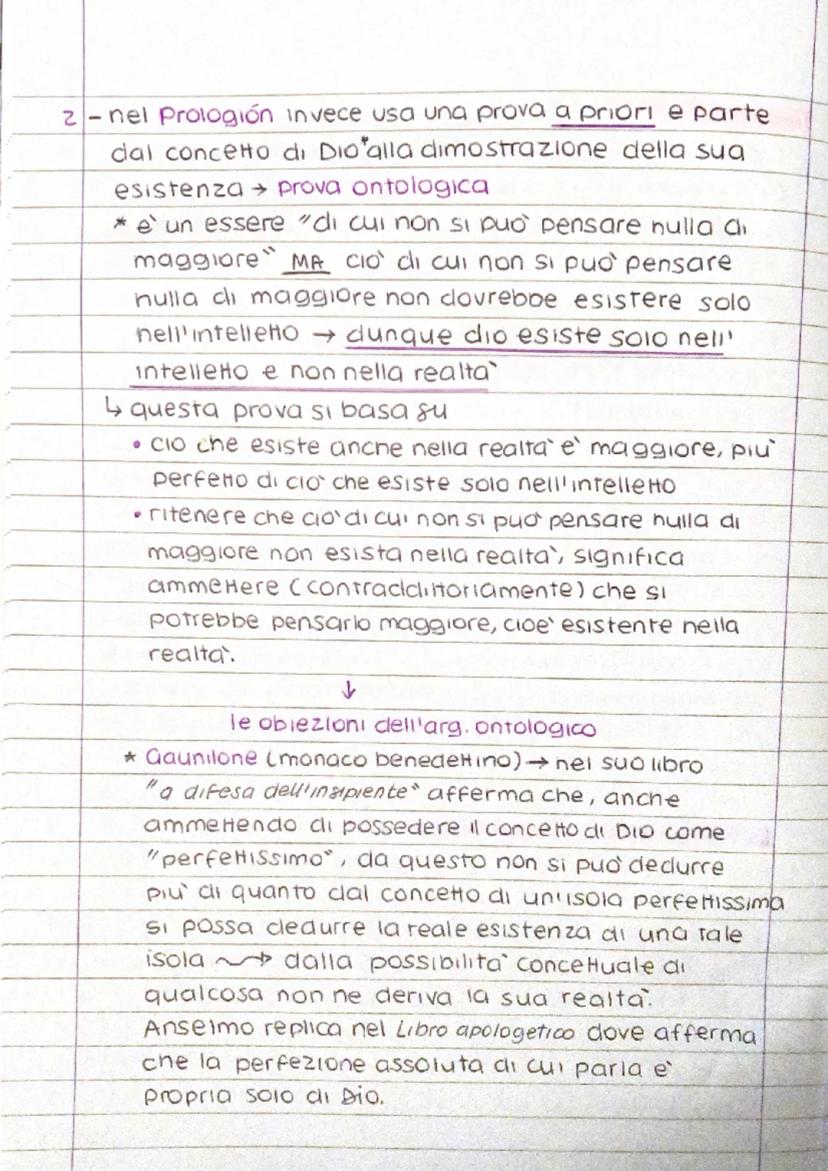 2 - nel Prologión invece usa una prova a priori e parte
dal concetto di Dio* alla dimostrazione della sua
esistenza → prova ontologica
* è un essere "di cui non si può pensare nulla di
maggiore" MA ciò di cui non si può pensare
nulla di maggiore non dovrebbe esistere solo
nell'intelletto → dunque dio esiste solo nell'
intelletto e non nella realtà
↳ questa prova si basa su
• ciò che esiste anche nella realtà è maggiore, più
perfetto di ciò che esiste solo nell'intelletto
• ritenere che ciò di cui non si può pensare nulla di
maggiore non esista nella realtà, significa
ammettere (contraddittoriamente) che si
potrebbe pensarlo maggiore, cioè esistente nella
realtà.
↓
le obiezioni dell'arg. ontologico
* Gaunilone (monaco benedettino) → nel suo libro
"a difesa dell'insipiente" afferma che, anche
ammettendo di possedere il concetto di Dio come
"perfettissimo", da questo non si può dedurre
più di quanto dal concetto di un'isola perfettissima
si possa dedurre la reale esistenza di una tale
isola ⇝ dalla possibilità concettuale di
qualcosa non ne deriva la sua realtà.
Anselmo replica nel Libro apologetico dove afferma
che la perfezione assoluta di cui parla è
propria solo di Dio.